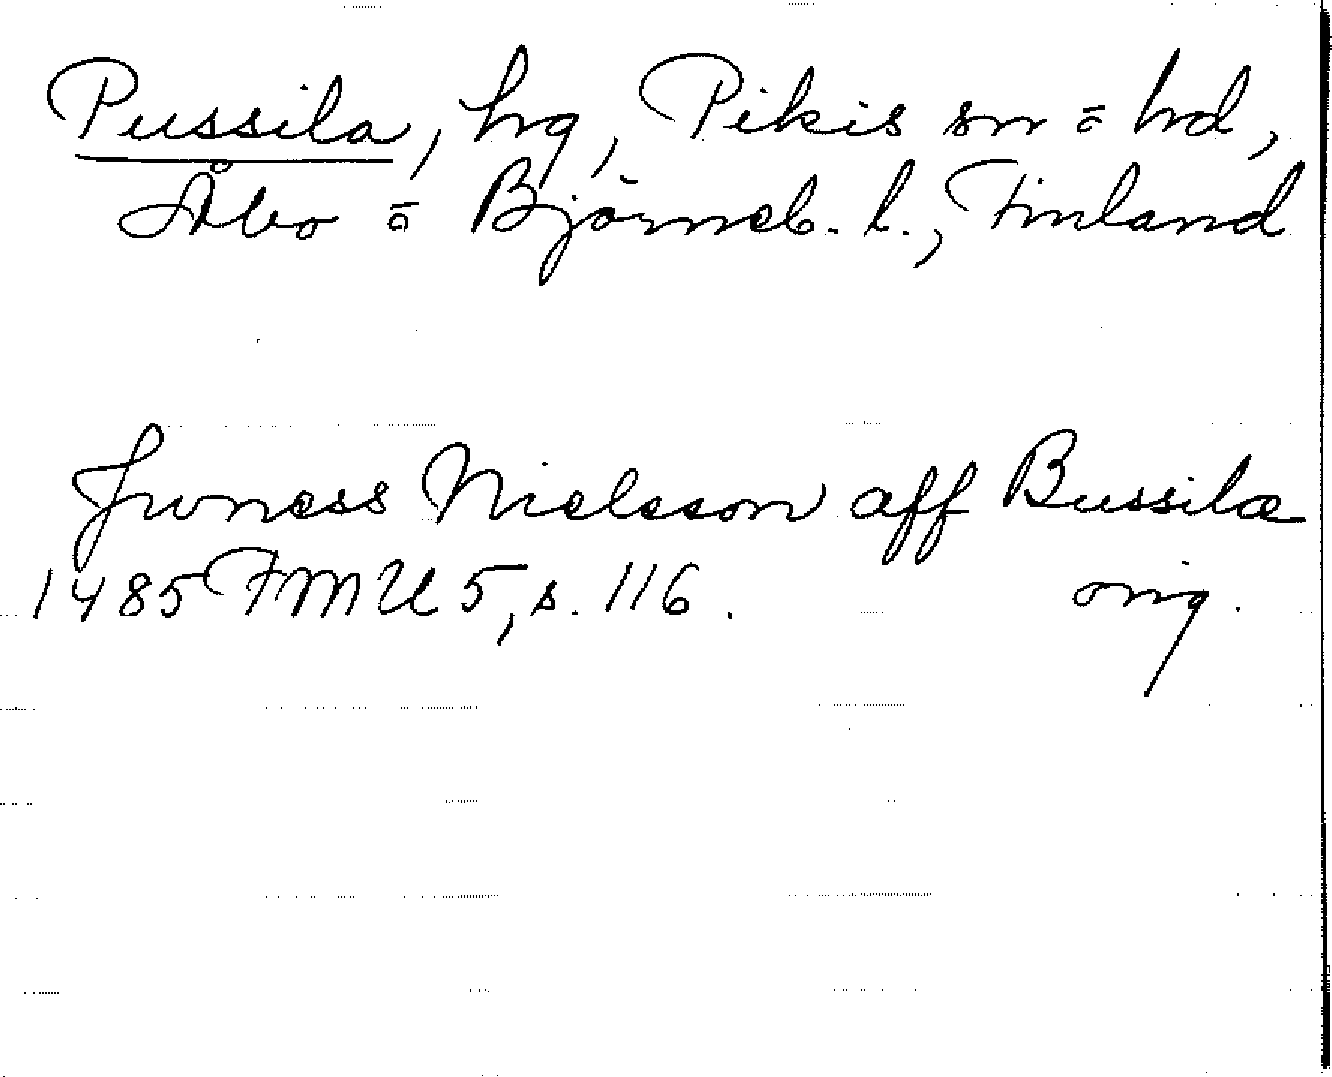 Pussila, hg, Pikis sn o hd,
Åbo o Björneb. l., Finland
Jwness Nielsson aff Bussila
1485 FMU 5, s. 116. orig.